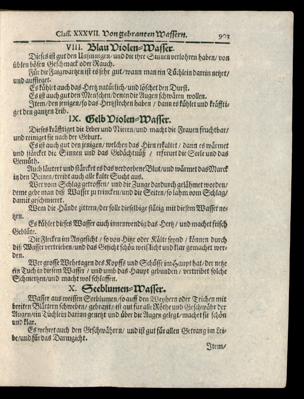 Class. XXXVII. Von gebranten Wassern. 903
VIII. Blau Violen-Wasser.
Dieses ist gut den Unsinnigen/ und die ihre Sinnen verlohren haben/ von
üblen bösen Geschmack oder Rauch.
Für die Augwartzen ist es sehr gut/ wann man ein Tüchlein darein netzet/
und aufleget.
Es kühlet auch das Hertz natürlich/ und löschet den Durst.
Es ist auch gut den Menschen/ denen die Augen schwären wollen.
Item/ denen jenigen/ so das Hertzstechen haben/ dann es kühlet und kräffti-
get den gantzen Leib.
IX. Gelb Violen-Wasser.
Dieses kräfftiget die Leber und Nieren/ und macht die Frauen fruchtbar/
und reiniget sie nach der Geburt.
Es ist auch gut den jenigen/ welchen das Hirn erkaltet/ dann es wärmet
und stärcket die Sinnen und das Gedächtnüß/ erfreuet die Seele und das
Gemüth.
Auch läutert und stärcket es das verdorbene Blut/ und wärmet das Marck
in den Beinen/ treibt auch alle kalte Sucht aus.
Wer vom Schlag getroffen/ und die Zunge dardurch gelähmet worden/
deme gebe man diß Wasser zu trincken/ und die Seiten/ so lahm vom Schlag/
damit geschmieret.
Wem die Hände zittern/ der solle dieselbige stätig mit diesem Wasser ne-
tzen.
Es kühlet dieses Wasser auch innwendig das Hertz/ und machet frisch
Geblüt.
Die Flecken im Angesicht/ so von Hitz oder Kälte seynd/ können durch
diß Wasser vertrieben/ und das Gesicht schön weiß licht und klar gemachet wer-
den.
Wer grosse Wehetagen des Kopffs und Schüsse im Haupt hat/ der netze
ein Tuch in diesem Wasser/ und umb das Haupt gebunden/ vertreibet solche
Schmertzen/ und macht wol schlaffen.
X. Seeblumen-Wasser.
Wasser aus weissen Seeblumen/ so auff den Weyhern oder Teichen mit
breiten Blättern schweben/ gebrant/ ist gut für alle Röthe und Geschwähr der
Augen/ ein Tüchlein darein genetzt und über die Augen gelegt/ machet sie schön
und klar.
Es wehret auch den Geschwähren/ und ist gut für allen Getrang im Lei-
be/ und für das Darmgicht.
Item/